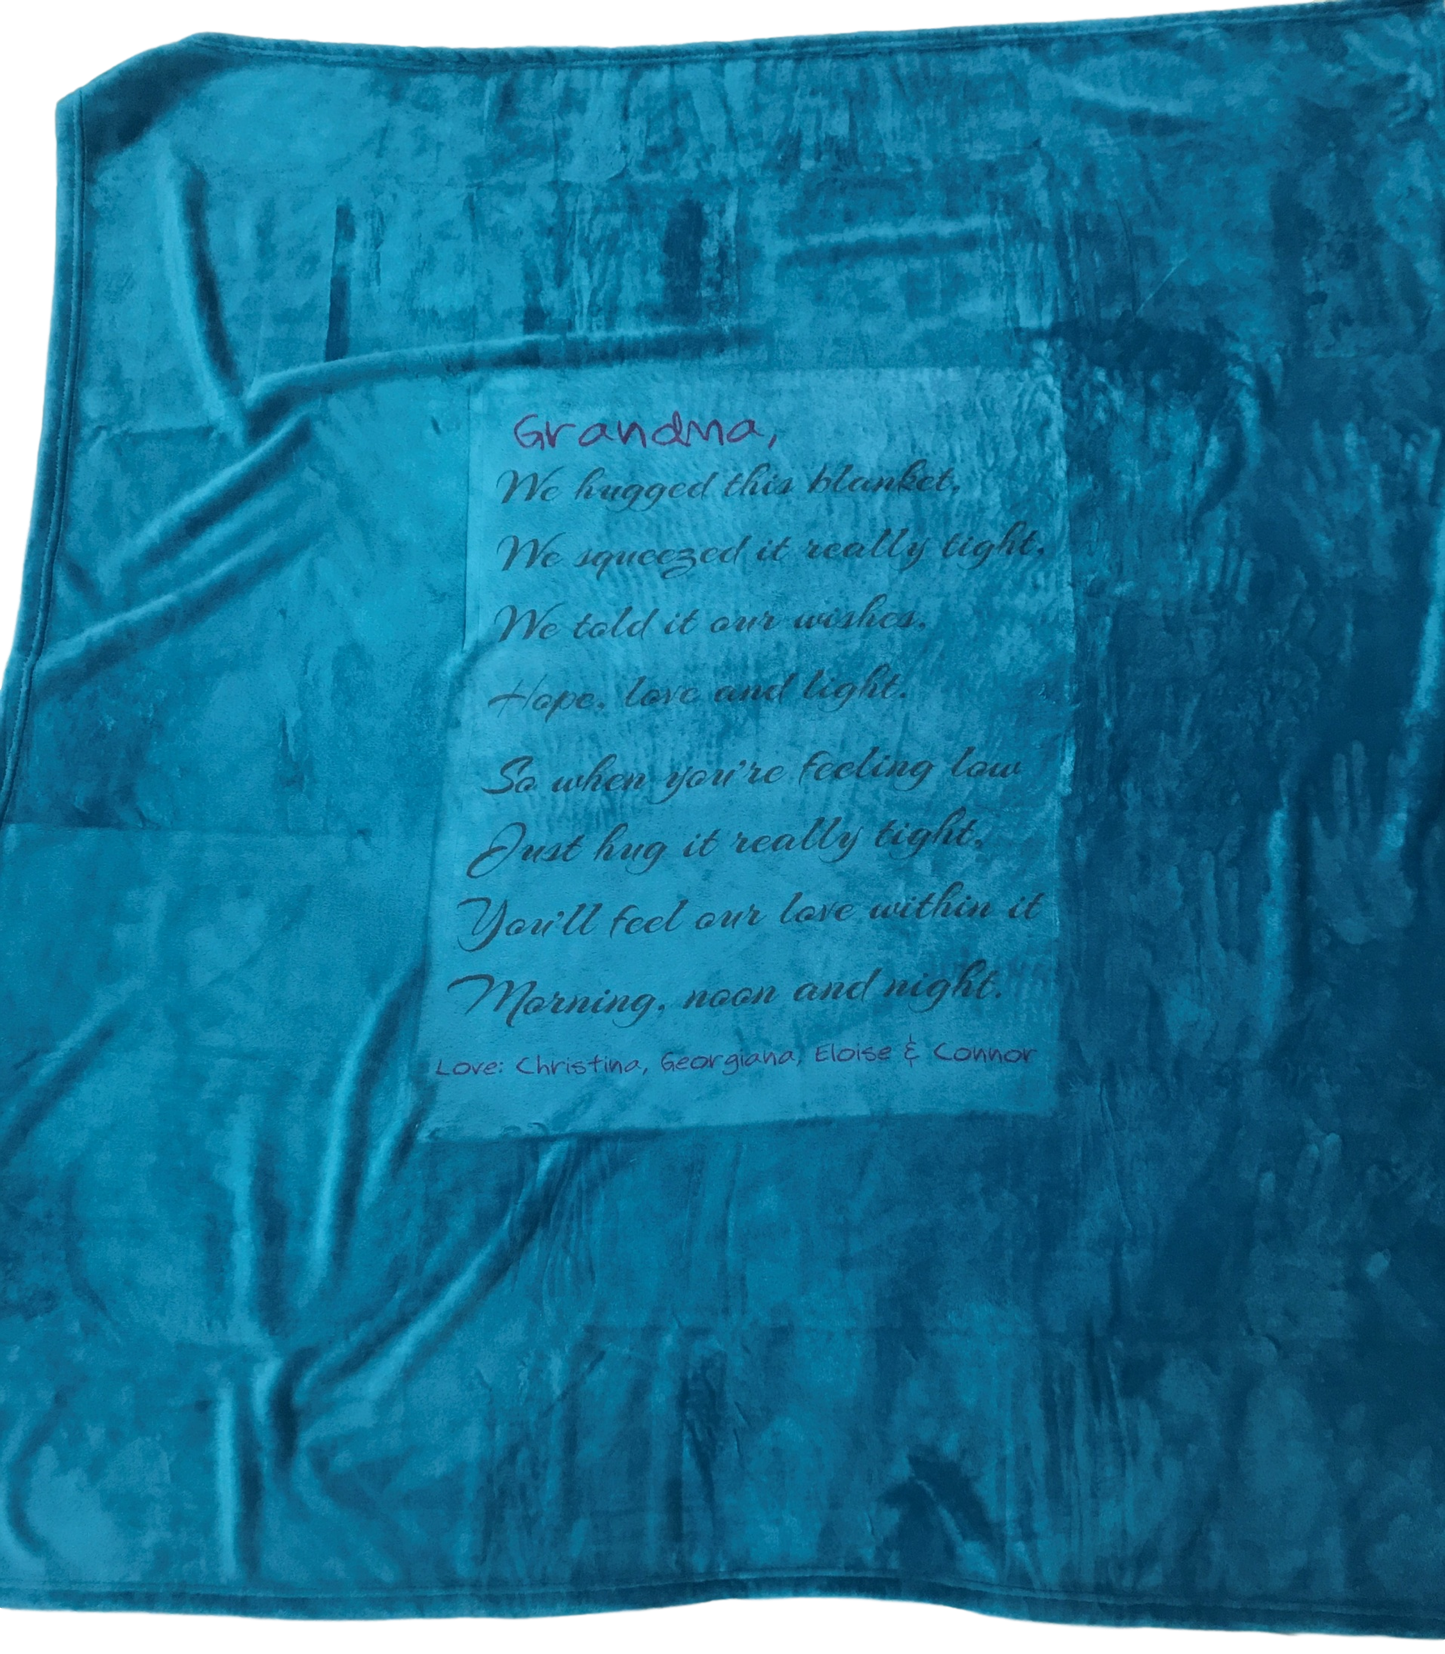 Grandma,
We hugged this blanket,
We squeezed it really tight,
We told it our wishes,
Hope, love and light.
So when you're feeling low
Just hug it really tight,
You'll feel our love within it
Morning, noon and night.
Love: Christina, Georgiana, Eloise & Connor